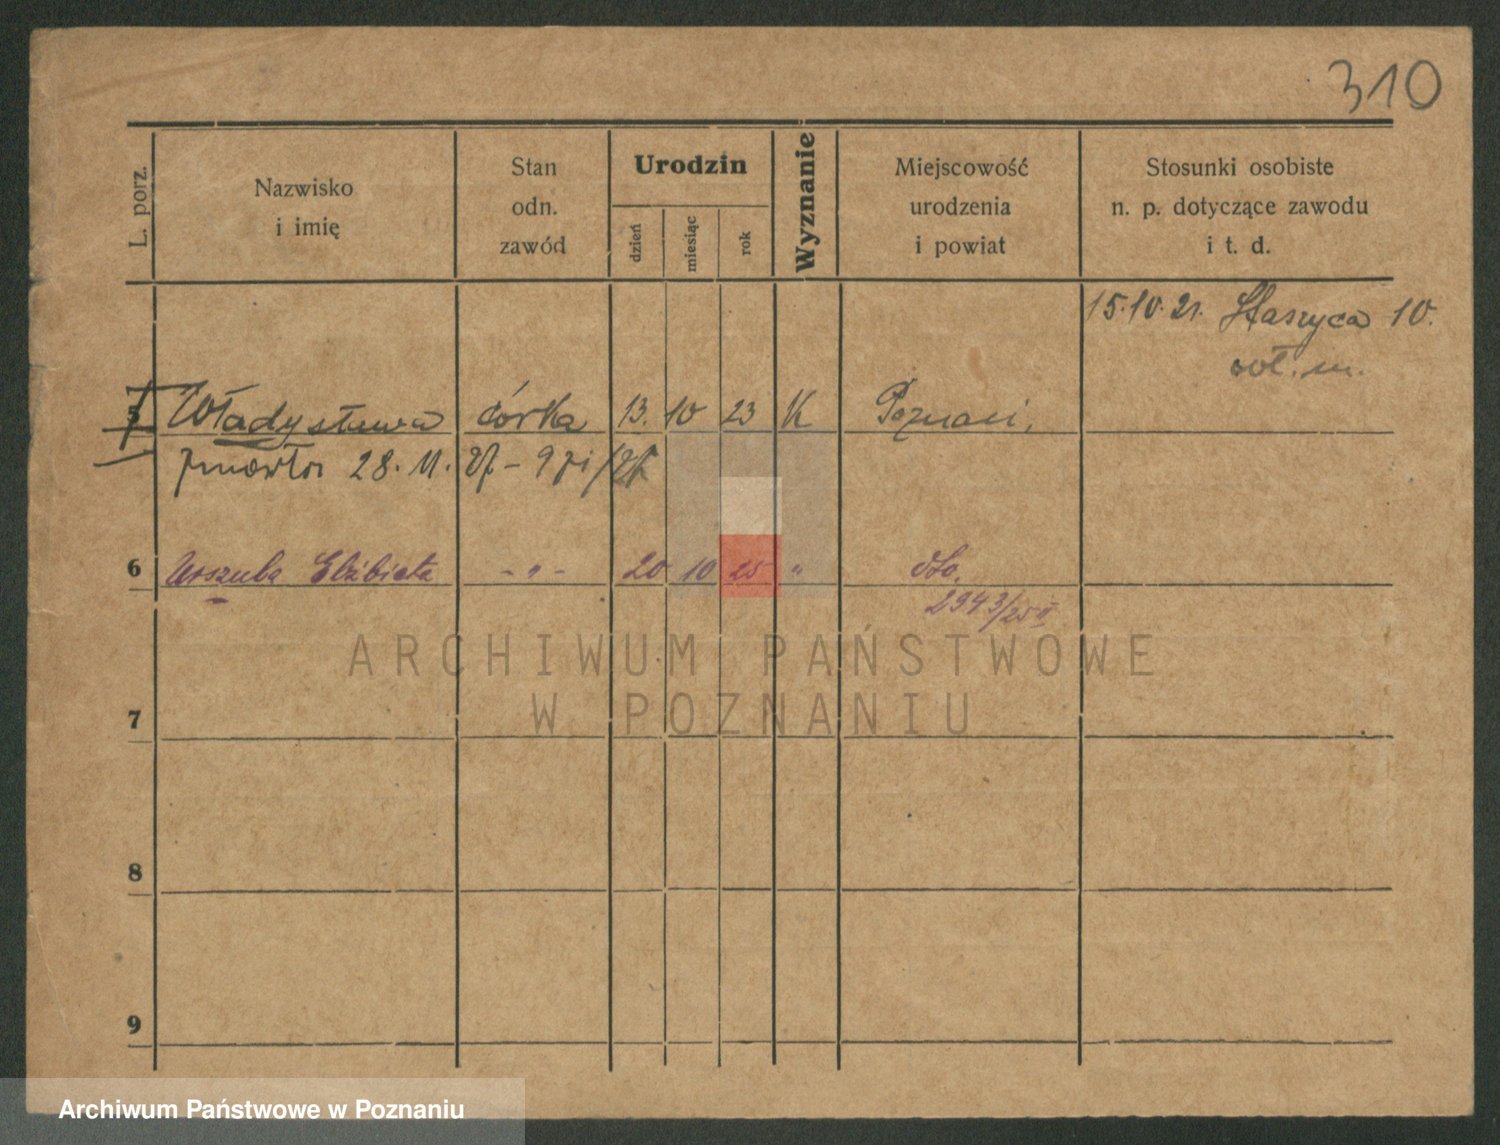 310
L. porz.
Nazwisko
i imię
Stan
odn.
zawód
Urodzin
dzień
miesiąc
rok
Wyznanie
Miejscowość
urodzenia
i powiat
Stosunki osobiste
n. p. dotyczące zawodu
i t. d.
15.10.21. Staszyca 10.
5 Władysława córka 13. 10 23 K Poznań.
zmarła 28. 11.
6 Urszula Elżbieta - " - 20 10 25 " dto.
2943/25 II
7
8
9
ARCHIWUM PAŃSTWOWE
W POZNANIU
Archiwum Państwowe w Poznaniu